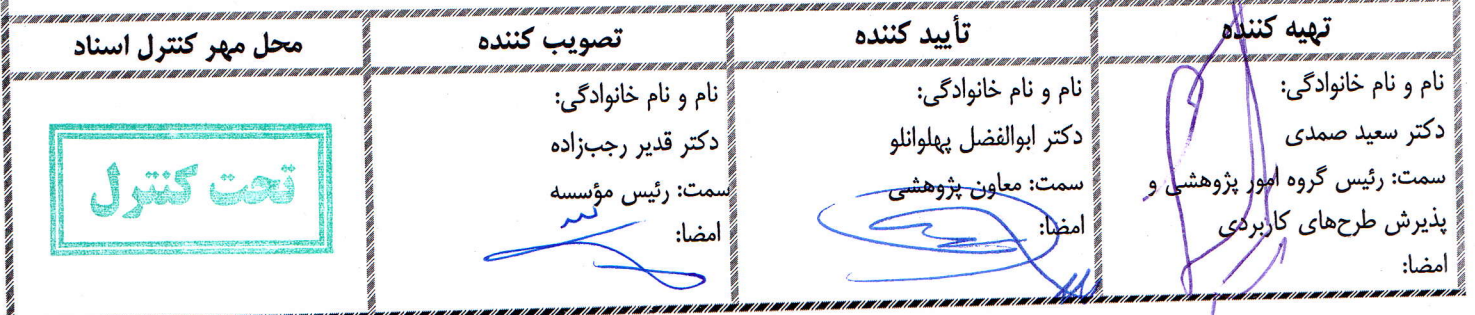 تهیه کننده
تأیید کننده
تصویب کننده
محل مهر کنترل اسناد
نام و نام خانوادگی:
دکتر سعید صمدی
سمت: رئیس گروه امور پژوهشی و
پذیرش طرح‌های کاربردی
امضا:
نام و نام خانوادگی:
دکتر ابوالفضل پهلوانلو
سمت: معاون پژوهشی
امضا:
نام و نام خانوادگی:
دکتر قدیر رجب‌زاده
سمت: رئیس مؤسسه
امضا:
تحت کنترل